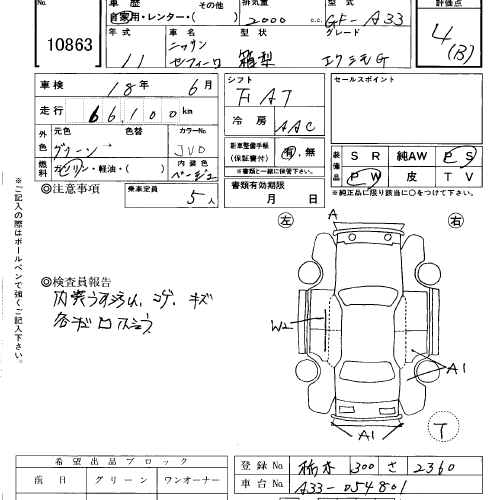 No. 車歴 その他 排気量 型式 評価点
10863 自家用・レンター・( ) 2000 c.c. GF-A33 4 (B)
年式 車名 型状 グレード
11 ニッサン セフィーロ 箱型 エクシモG
車検 18年 6月 シフト セールスポイント
走行 66,100 km FAT
冷房 AAC
外色 元色 色替 カラーNo.
グリーン JVO
新車整備手帳(保証書付) 有・無
※書類と一緒に保管下さい。
装備品 SR 純AW PS
PW 皮 TV
※純正品に限り該当に○をつけて下さい。
燃料 ガソリン・軽油・( ) 内装色 ベージュ
◎注意事項 乗車定員 5人
書類有効期限
月 日
※ご記入の際はボールペンで強くご記入下さい。
左 A 右
◎検査員報告
W2
A1
A1
T
希望出品ブロック
前日 グリーン ワンオーナー
登録No. 栃木 300 さ 2360
車台No. A33-054801